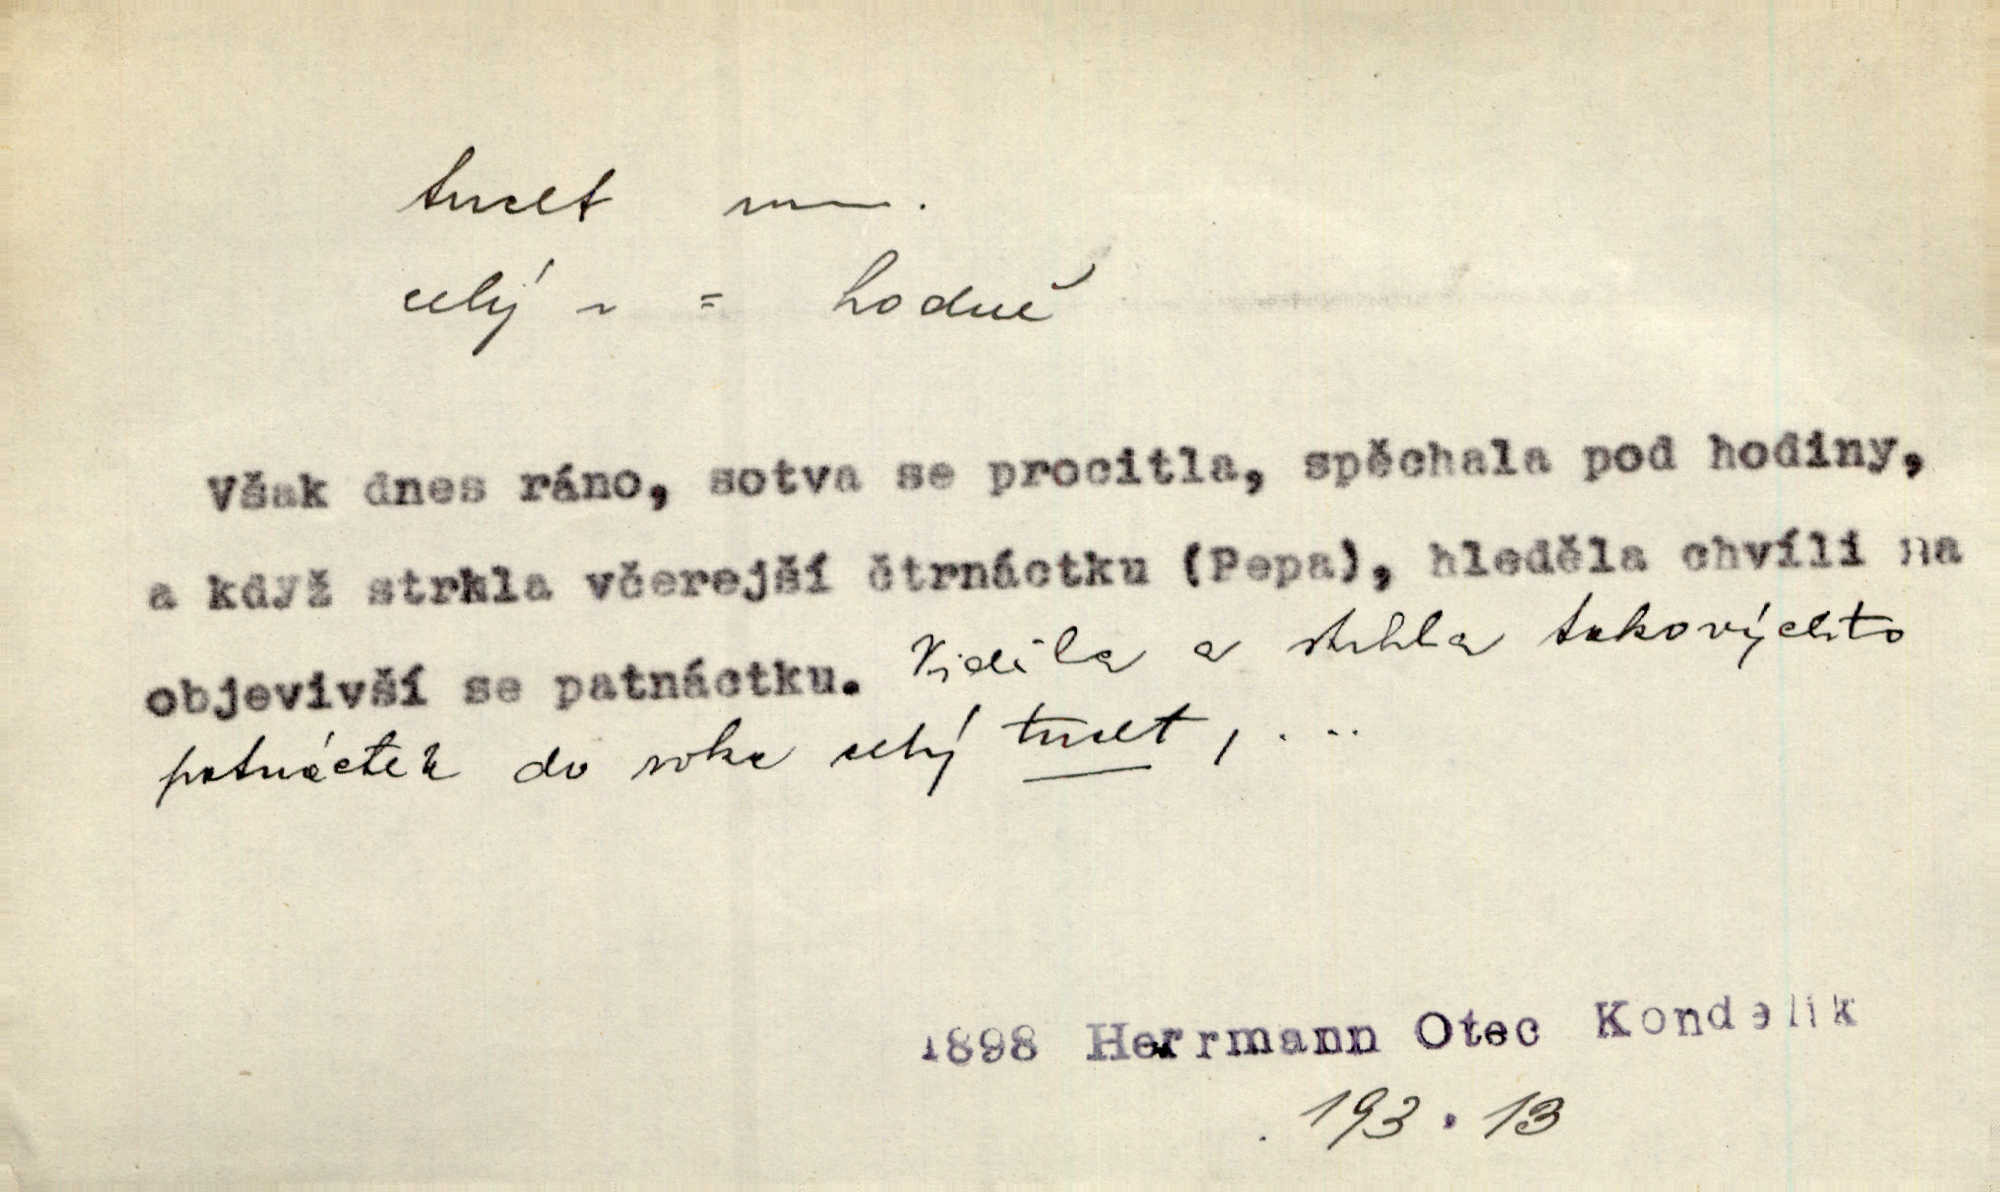 tucet m.
celý ~ = hodně
Však dnes ráno, sotva se procitla, spěchala pod hodiny,
a když strkla včerejší čtrnáctku (Pepa), hleděla chvíli na
objevivší se patnáctku. Viděla a strhla takovýchto
patnáctek do roka celý tucet, ...
1898 Herrmann Otec Kondelík
193 . 13